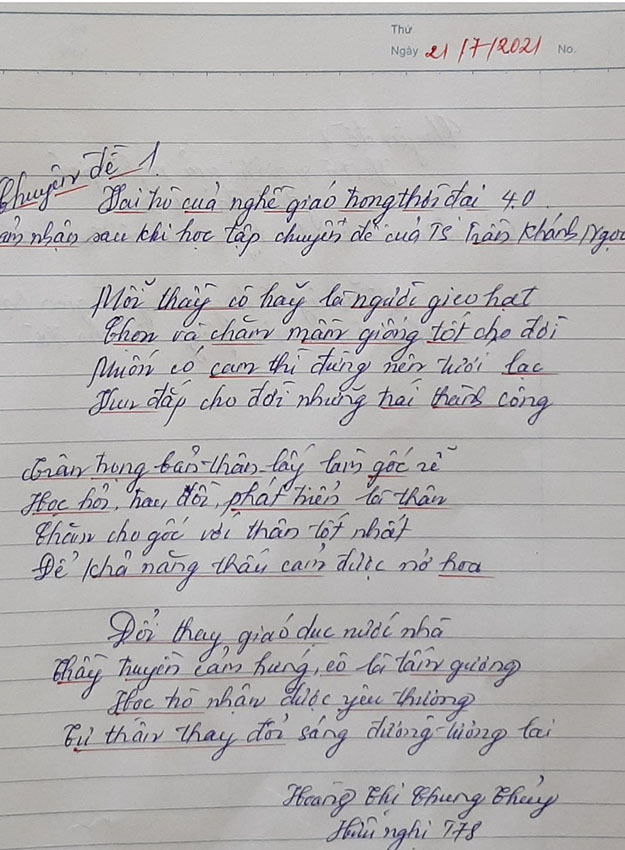 Thứ
Ngày 21/7/2021 No.
Chuyên đề 1.
Vai trò của nghề giáo trong thời đại 4.0.
Cảm nhận sau khi học tập chuyên đề của TS Trần Khánh Ngọc
Mỗi thầy cô hãy là người gieo hạt
Chọn và chăm mầm giống tốt cho đời
Muốn có cam thì đừng nên tưới lạc
Vun đắp cho đời những trái thành công
Trân trọng bản thân lấy làm gốc rễ
Học hỏi, trau dồi, phát triển là thân
Chăm cho gốc với thân tốt nhất
Để khả năng thấu cảm được nở hoa
Đổi thay giáo dục nước nhà
Thầy truyền cảm hứng, cô là tấm gương
Học trò nhận được yêu thương
Tự thân thay đổi sáng đường tương lai
Hoàng Thị Chung Thủy
Hữu nghị T78